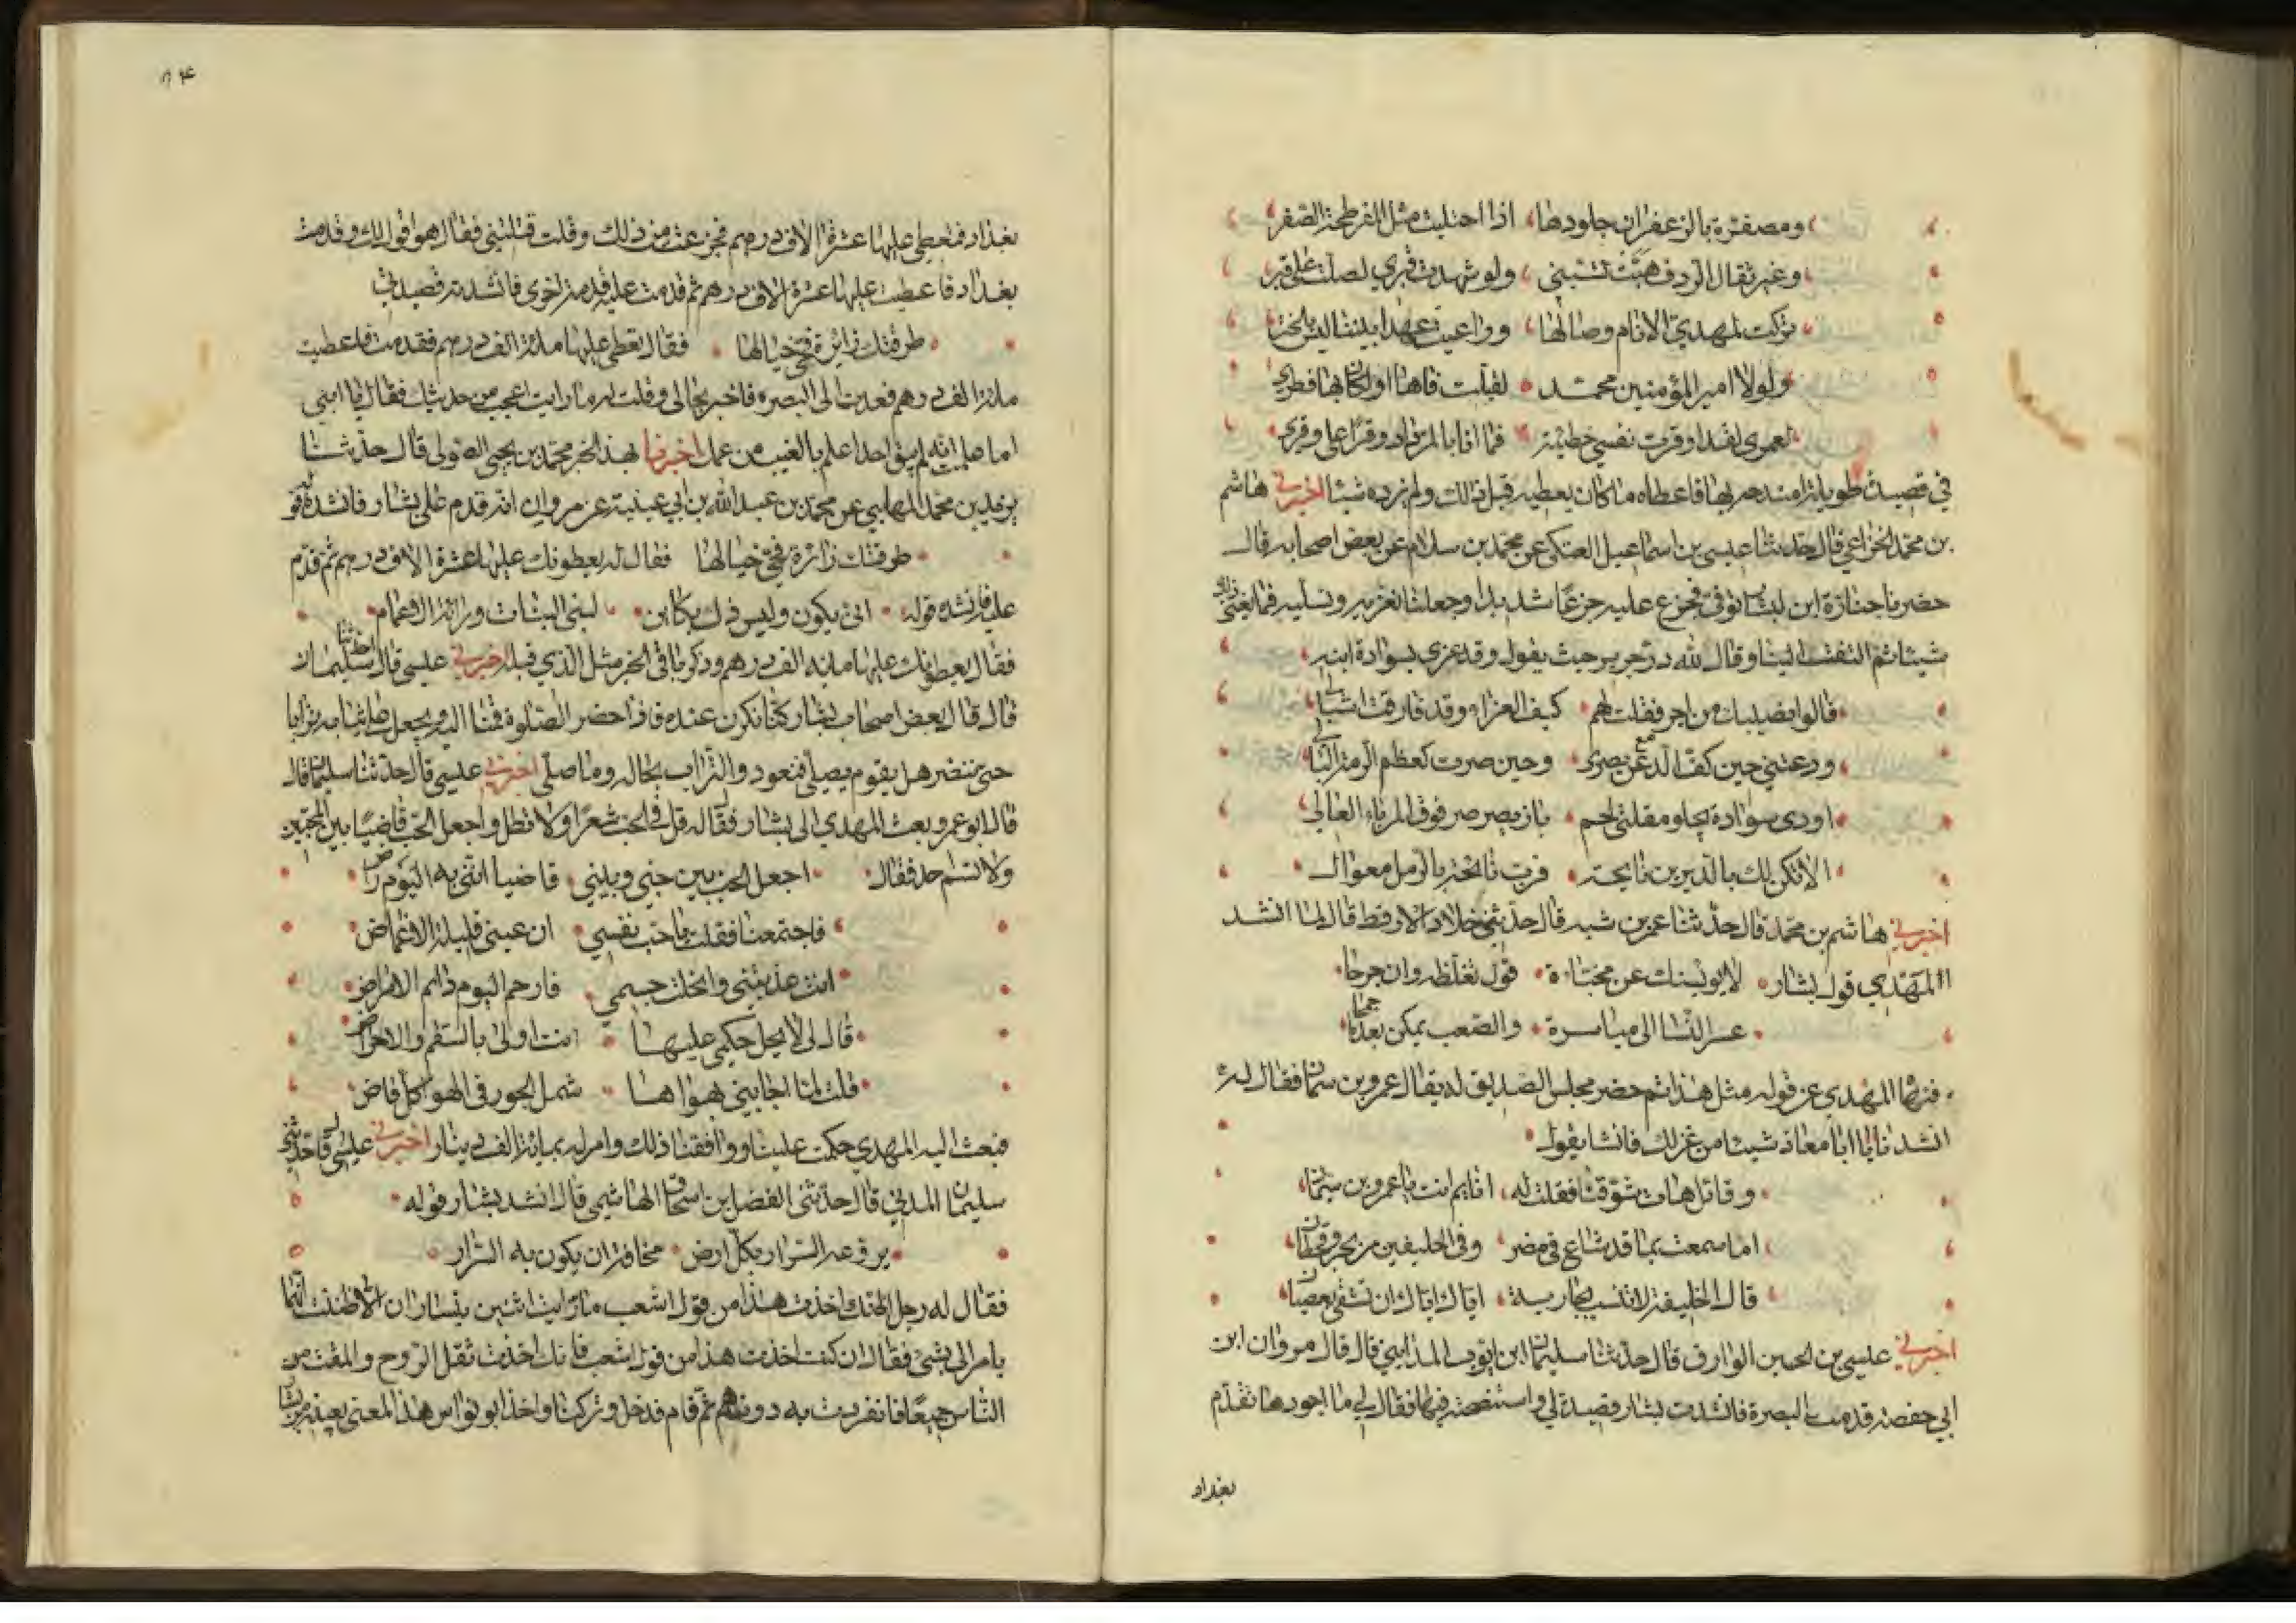 ومصفرة بالزعفران جلودها اذا اجتليت مثل المفرطحة الصفر
وغير ثقال الردف هبت تسبني ولو شهدت قبري لصلت على قبري
تركت لمهدي الانام وصالها وراعيت عهدا بيننا ليس بالختر
ولولا امير المؤمنين محمد لقبلت فاها او لكان بها فطري
لعمري لقد اوقرت نفسي خطيئة فما انا بالمزداد وقرا على وقري
في قصيدة طويلة امتدحه بها فاعطاه ما كان يعطيه قبل ذلك ولم يزده شيئا اخبرني هاشم
بن محمد الخزاعي قال حدثنا عيسى بن اسماعيل العتكي عن محمد بن سلام عن بعض اصحابه قال
حضرنا جنازة ابن لبشار توفي فجزع عليه جزعا شديدا وجعلنا نعزيه ونسليه فما يغني ذلك
شيئا ثم التفت الينا وقال لله در جرير حيث يقول وقد عزي بسوادة ابنه
قالوا نصيبك من اجر فقلت لهم كيف العزاء وقد فارقت اشبالي
ودعتني حين كف الدهر من بصري وحين صرت كعظم الرمة البالي
اودى سوادة يجلو مقلتي لحم باز يصرصر فوق المرباء العالي
الا تكن لك بالديرين نائحة فرب نائحة بالرمل معوال
اخبرني هاشم بن محمد قال حدثنا عمر بن شبه قال حدثني خلاد الارقط قال لما انشد
المهدي قول بشار لا يويسنك عن مخباءة قول تغلظه وان جرحا
عسر النسا الى مياسرة والصعب يمكن بعدما جمحا
فنهاه المهدي عن قوله مثل هذا ثم حضر مجلس الصديق له يقال عمرو بن سمان فقال له
انشدنا يا ابا معاذ شيئا من غزلك فانشا يقول
وقائل هات شوقنا فقلت له انائم انت يا عمرو بن سمان
اما سمعت بما قد شاع في مضر وفي الحليفين من بحر وقحطان
قال الخليفة لا تنسب بجارية اياك اياك ان تشقى بعصيان
اخبرني عيسى بن الحسين الوراق قال حدثنا سليمان ابن ايوب المدايني قال قال مروان ابن
ابي حفصة قدمت البصرة فانشدت بشار قصيدة لي واستنصحته فيها فقال لي ما اجودها تقدم
بغداد
٨٤
بغداد فتعطى عليها عشرة الاف درهم فجزعت من ذلك وقلت قتلتني فقال هو ما اقول لك وقدمت
بغداد فاعطيت عليها عشرة الاف درهم ثم قدمت عليه قدمة اخرى فانشدته قصيدتي
طرقتك زائرة فحي خيالها فقال تعطى عليها مائة الف درهم فقدمت فاعطيت
مائة الف درهم فعدت الى البصره فاخبرته بحالي وقلت له ما رايت اعجب من حديثك فقال يا ابني
اما علمت انه لم يبق احد اعلم بالغيب من عمك اخبرنا بهذا الخبر محمد بن يحيى الصولي قال حدثنا
يزيد بن محمد المهلبي عن محمد بن عبد الله بن ابي عيينة عن مروان انه قدم على بشار فانشده قوله
طرقتك زائرة فحي خيالها فقال له يعطونك عليها عشرة الاف درهم ثم قدم
عليه فانشده قوله انى يكون وليس ذاك بكاين لبني البنات وراثة الاعمام
فقال يعطونك عليها مايه الف درهم وذكر باقي الخبر مثل الذي قبله اخبرني عيسى قال حدثنا سليمان
قال قال بعض اصحاب بشار كنا نكون عنده فاذا حضر الصلوة قمنا اليها ويجعل على ثيابه ترابا
حتى ننضر هل يقوم يصلي فنعود والتراب بحاله وما صلى اخبرني عيسى قال حدثنا سليمان قال
قال ابو عمرو بعث المهدي الى بشار فقال له قل في الحب شعرا ولا تطل واجعل الحب قاضيا بين المحبين
ولا تسم احد فقال اجعل الحب بين حبي وبيني قاضيا انني به اليوم راض
فاجتمعنا فقلت يا حب نفسي ان عيني قليلة الاغماض
انت عذبتني وانحلت جسمي فارحم اليوم دائم الامراض
قال لي لا يحل حكمي عليها انت اولى بالسقم والامراض
قلت لما اجابني بهواها شمل الجور في الهوى كل قاض
فبعث اليه المهدي حكمت علينا ووافقنا ذلك وامر له بمائة الف دينار اخبرني عيسى قال حدثني
سليمان المدني قال حدثني الفضل بن اسحاق الهاشمي قال انشد بشار قوله
يروعه السرار بكل ارض مخافة ان يكون به السرار
فقال له رجل اظنك اخذت هذا من قول اشعب ما رايت اثنين يتساران الا ظننت انهما
يامران لي بشي فقال ان كنت اخذت هذا من قول اشعب فانك اخذت ثقل الروح والمقت من
الناس جميعا فانفردت به دونهم ثم قام فدخل وتركنا واخذ ابو نواس هذا المعنى بعينه من بشار